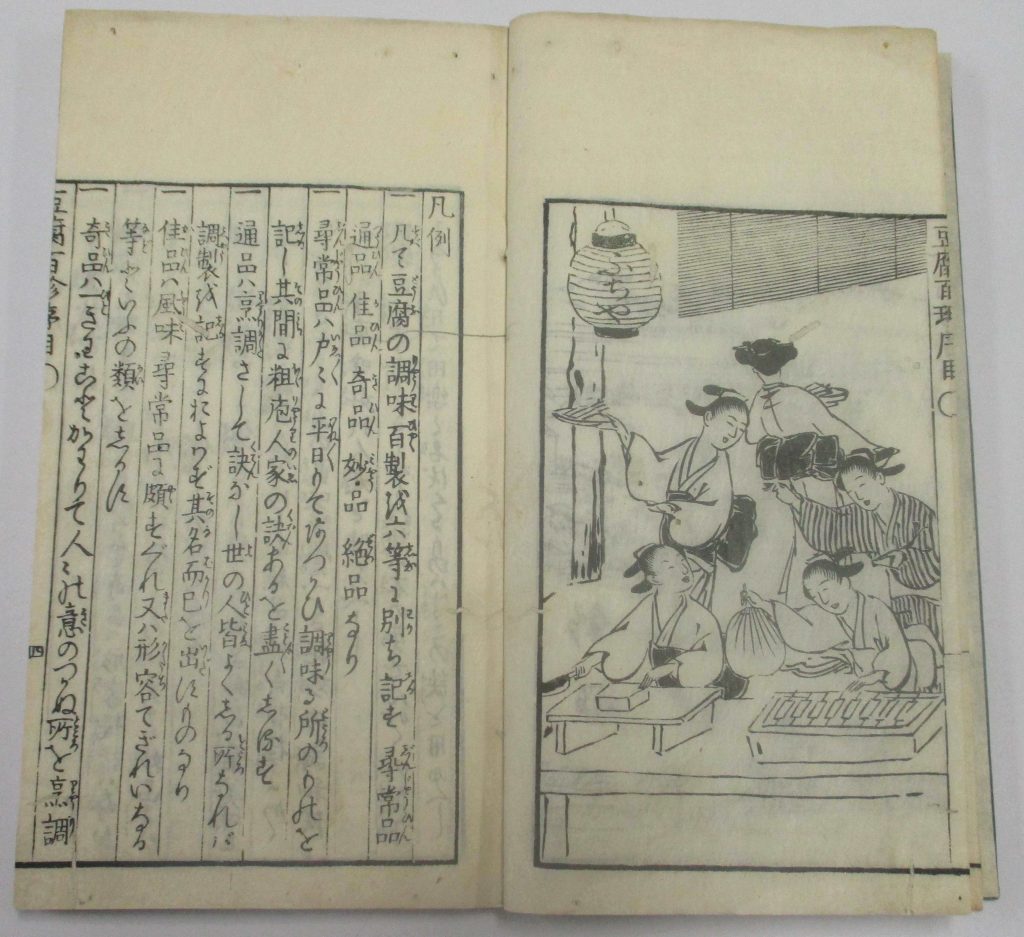 豆腐百珍序目
ふぢや
凡例
一凡て豆腐の調味百製を六等に別ち記す 尋常品
通品 佳品 奇品 妙品 絶品なり
一尋常品ハ戸々に平日もてあつかひ調味る所のものを
記し其間に粗庖人家の訣あるを盡くしるす
一通品ハ烹調さして訣なし世の人皆よくしる所なれバ
調製を記すにおよバず其名而已を出すものなり
一佳品ハ風味尋常品に頗すぐれ又ハ形容てぎれいなる
等といふの類をしるす
一奇品ハ一きわことかわりて人々の意のつかぬ所を烹調
豆腐百珍序目
四